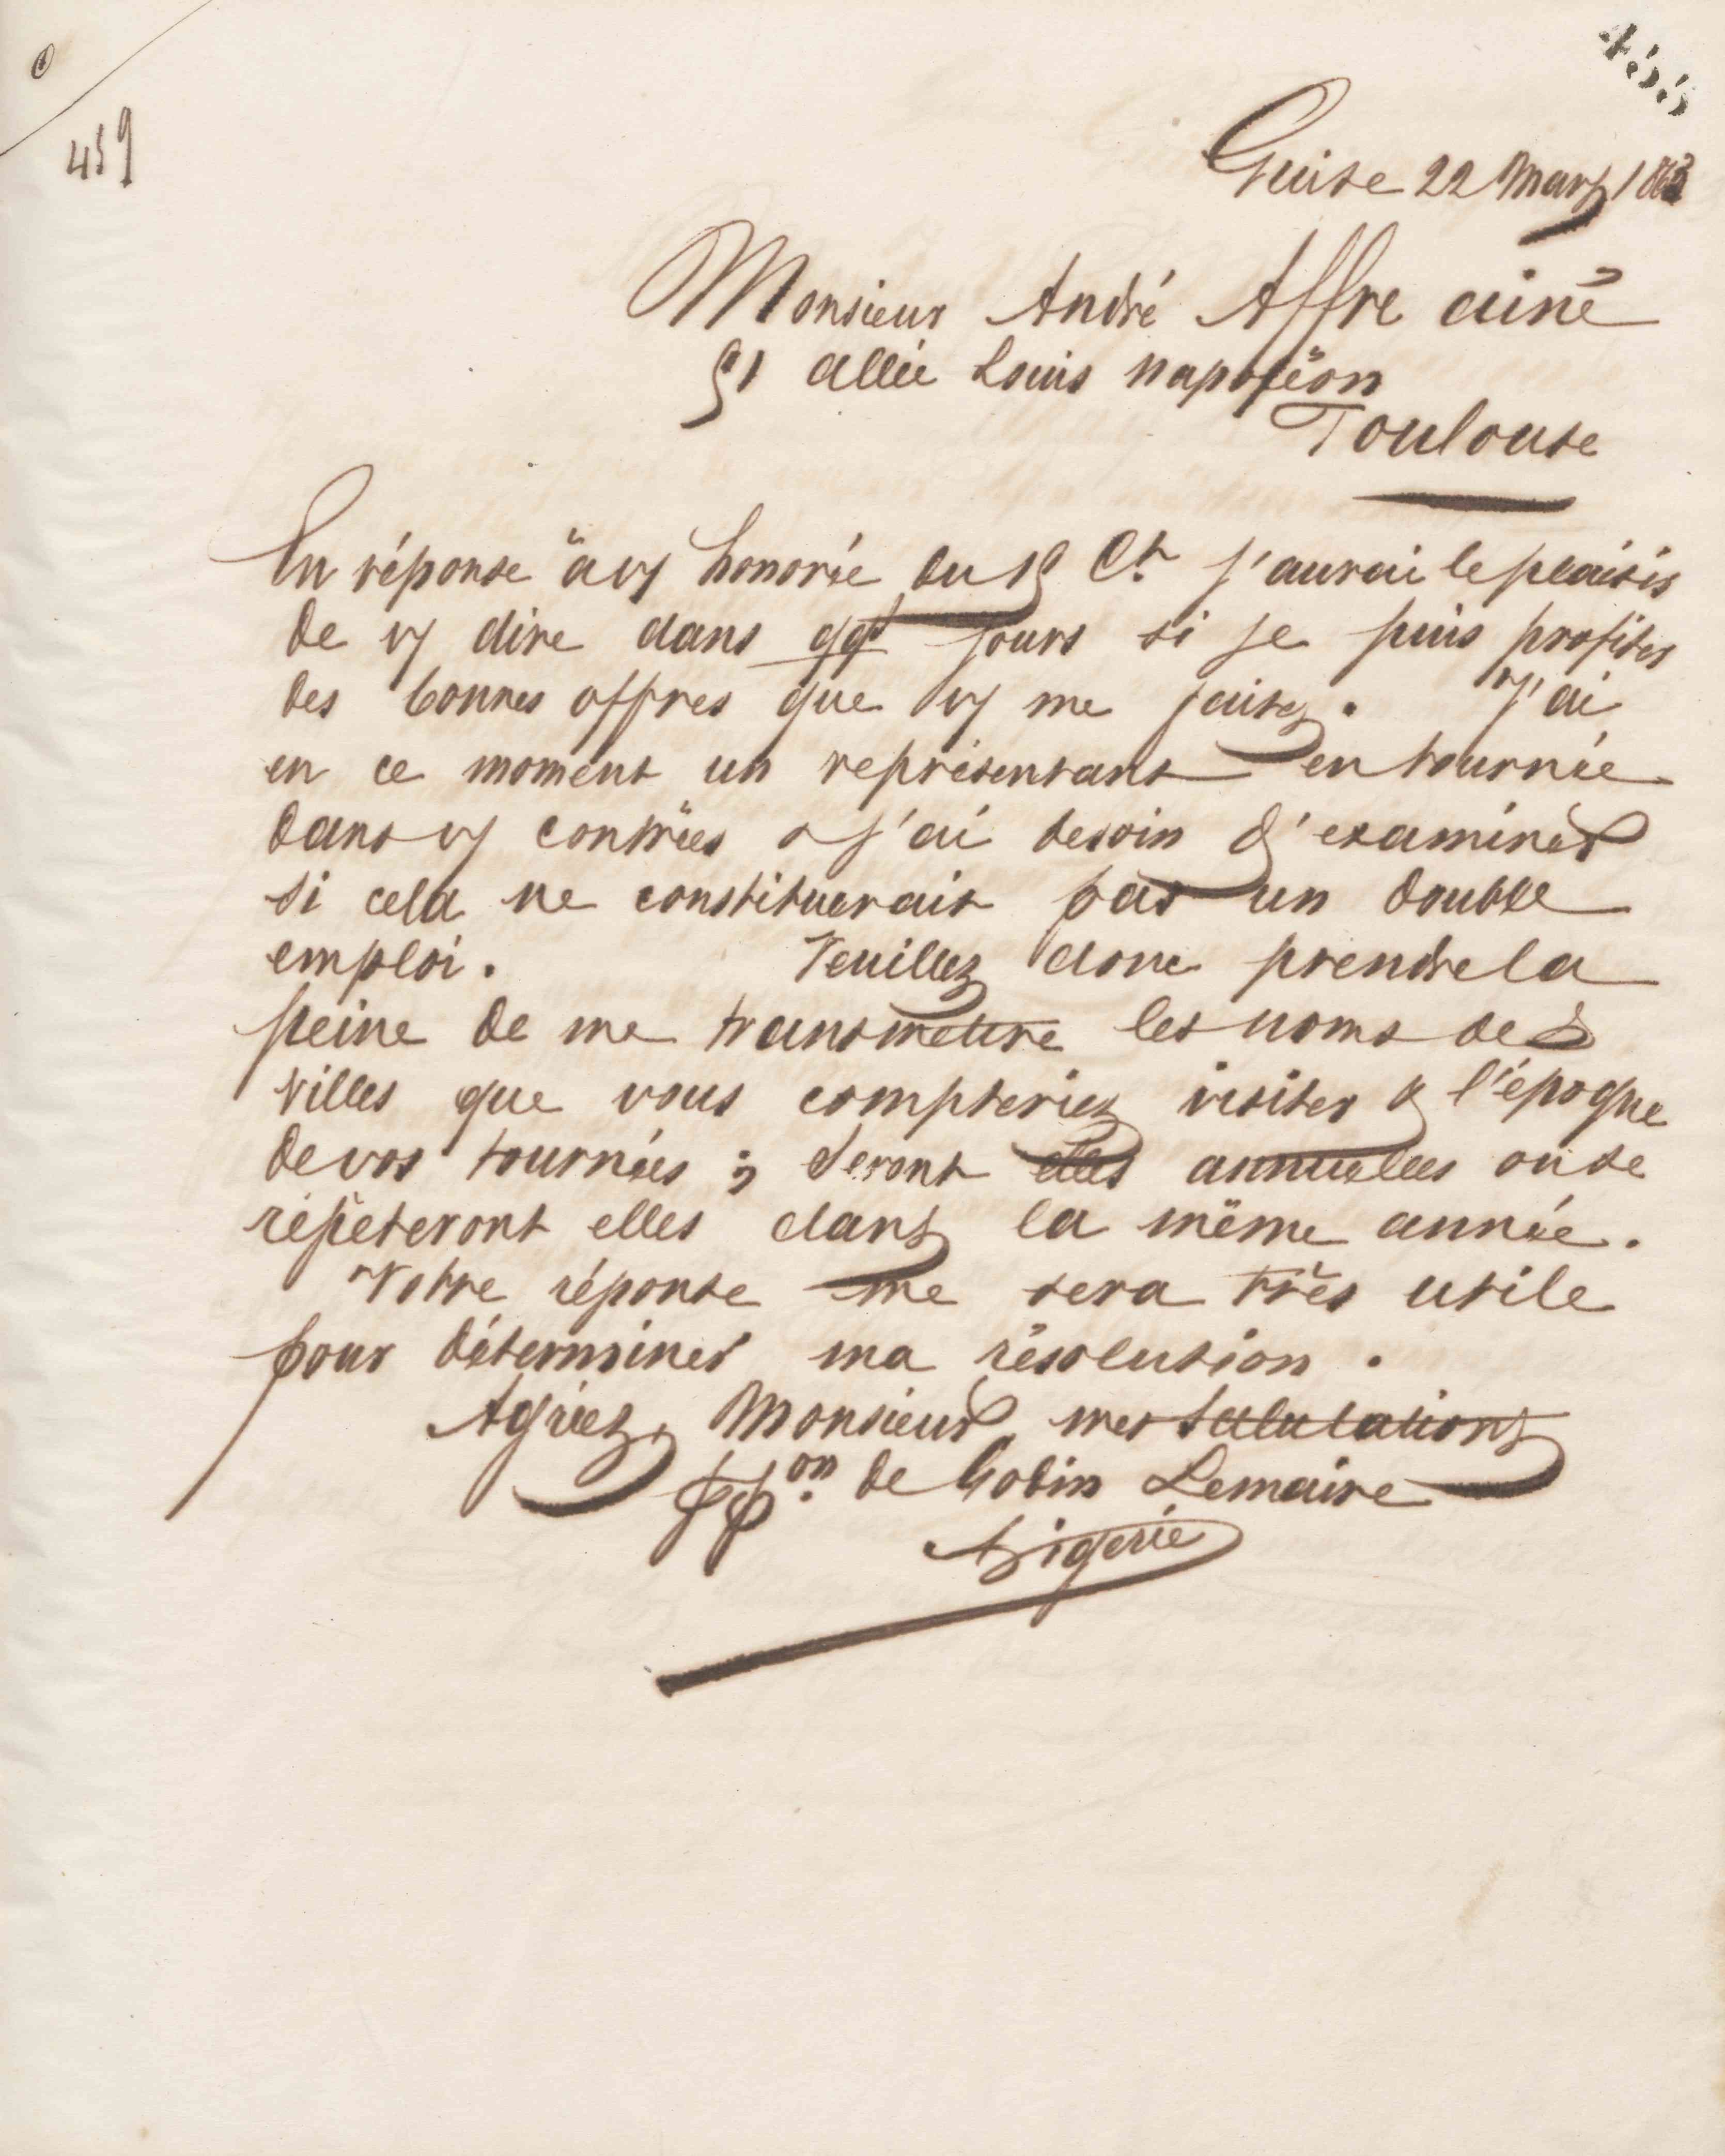 455
459
Guise 22 Mars 1863
Monsieur André Affre ainé
51 allée Louis napoléon
Toulouse
En réponse à vs honorée du 18 Ct j'aurai le plaisir
de vs dire dans qqs jours si je puis profiter
des bonnes offres que vs me faites. J'ai
en ce moment un représentant en tournée
dans vs contrées & j'ai besoin d'examiner
si cela ne constituerait pas un double
emploi. Veuillez donc prendre la
peine de me transmettre les noms des
villes que vous compteriez visiter & l'époque
de vos tournées ; seront elles annuelles ou se
répèteront elles dans la même année.
Votre réponse me sera très utile
pour déterminer ma résolution.
Agréez, Monsieur, mes salutations
ppon de Godin Lemaire